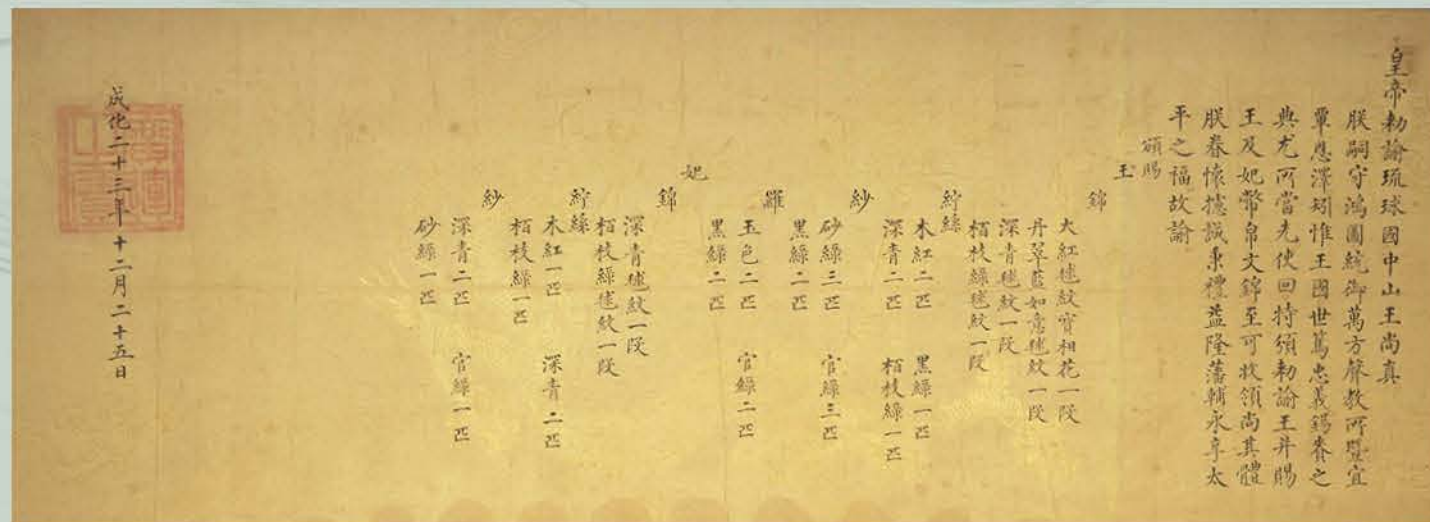 皇帝勅諭琉球國中山王尚真
朕嗣守鴻圖統御萬方聲教所曁宜
覃恩澤矧惟王國世篤忠義錫賚之
典尤所當先使回特頒勅諭王并賜
王及妃幣帛文錦至可收領尚其體
朕眷懷攄誠秉禮益隆藩輔永享太
平之福故諭
頒賜
王
錦
大紅毬紋寶相花一段
丹翠藍如意毬紋一段
深青毬紋一段
栢枝綠毬紋一段
紵絲
木紅二匹 黑綠一匹
深青二匹 栢枝綠一匹
紗
砂綠三匹 官綠三匹
黑綠二匹
羅
玉色二匹 官綠二匹
黑綠二匹
妃
錦
深青毬紋一段
栢枝綠毬紋一段
紵絲
木紅一匹 深青二匹
栢枝綠一匹
紗
深青二匹 官綠一匹
砂綠一匹
成化二十三年十二月二十五日
廣運之寶